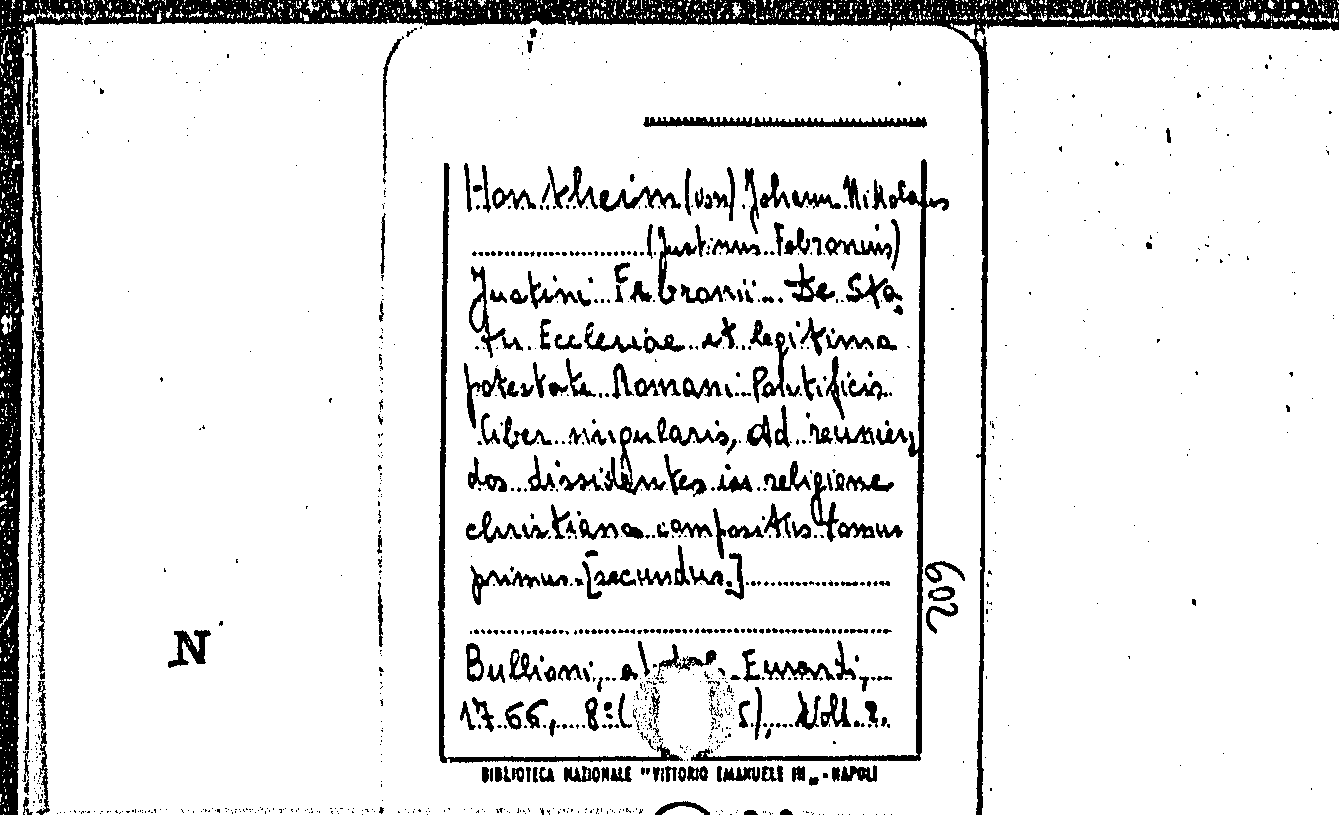 Hontheim (von) Johann Nikolaus
(Justinus Febronius)
Justini Febronii De Sta
tu Ecclesiae et legitima
potestate Romani Pontificis
liber singularis, ad reunien
dos dissidentes in religione
christiana compositus tomus
primus. [secundus.]
602
N
Bullioni, Evrardi,
1766, 8º ( ), Voll. 2.
BIBLIOTECA NAZIONALE "VITTORIO EMANUELE III„ - NAPOLI